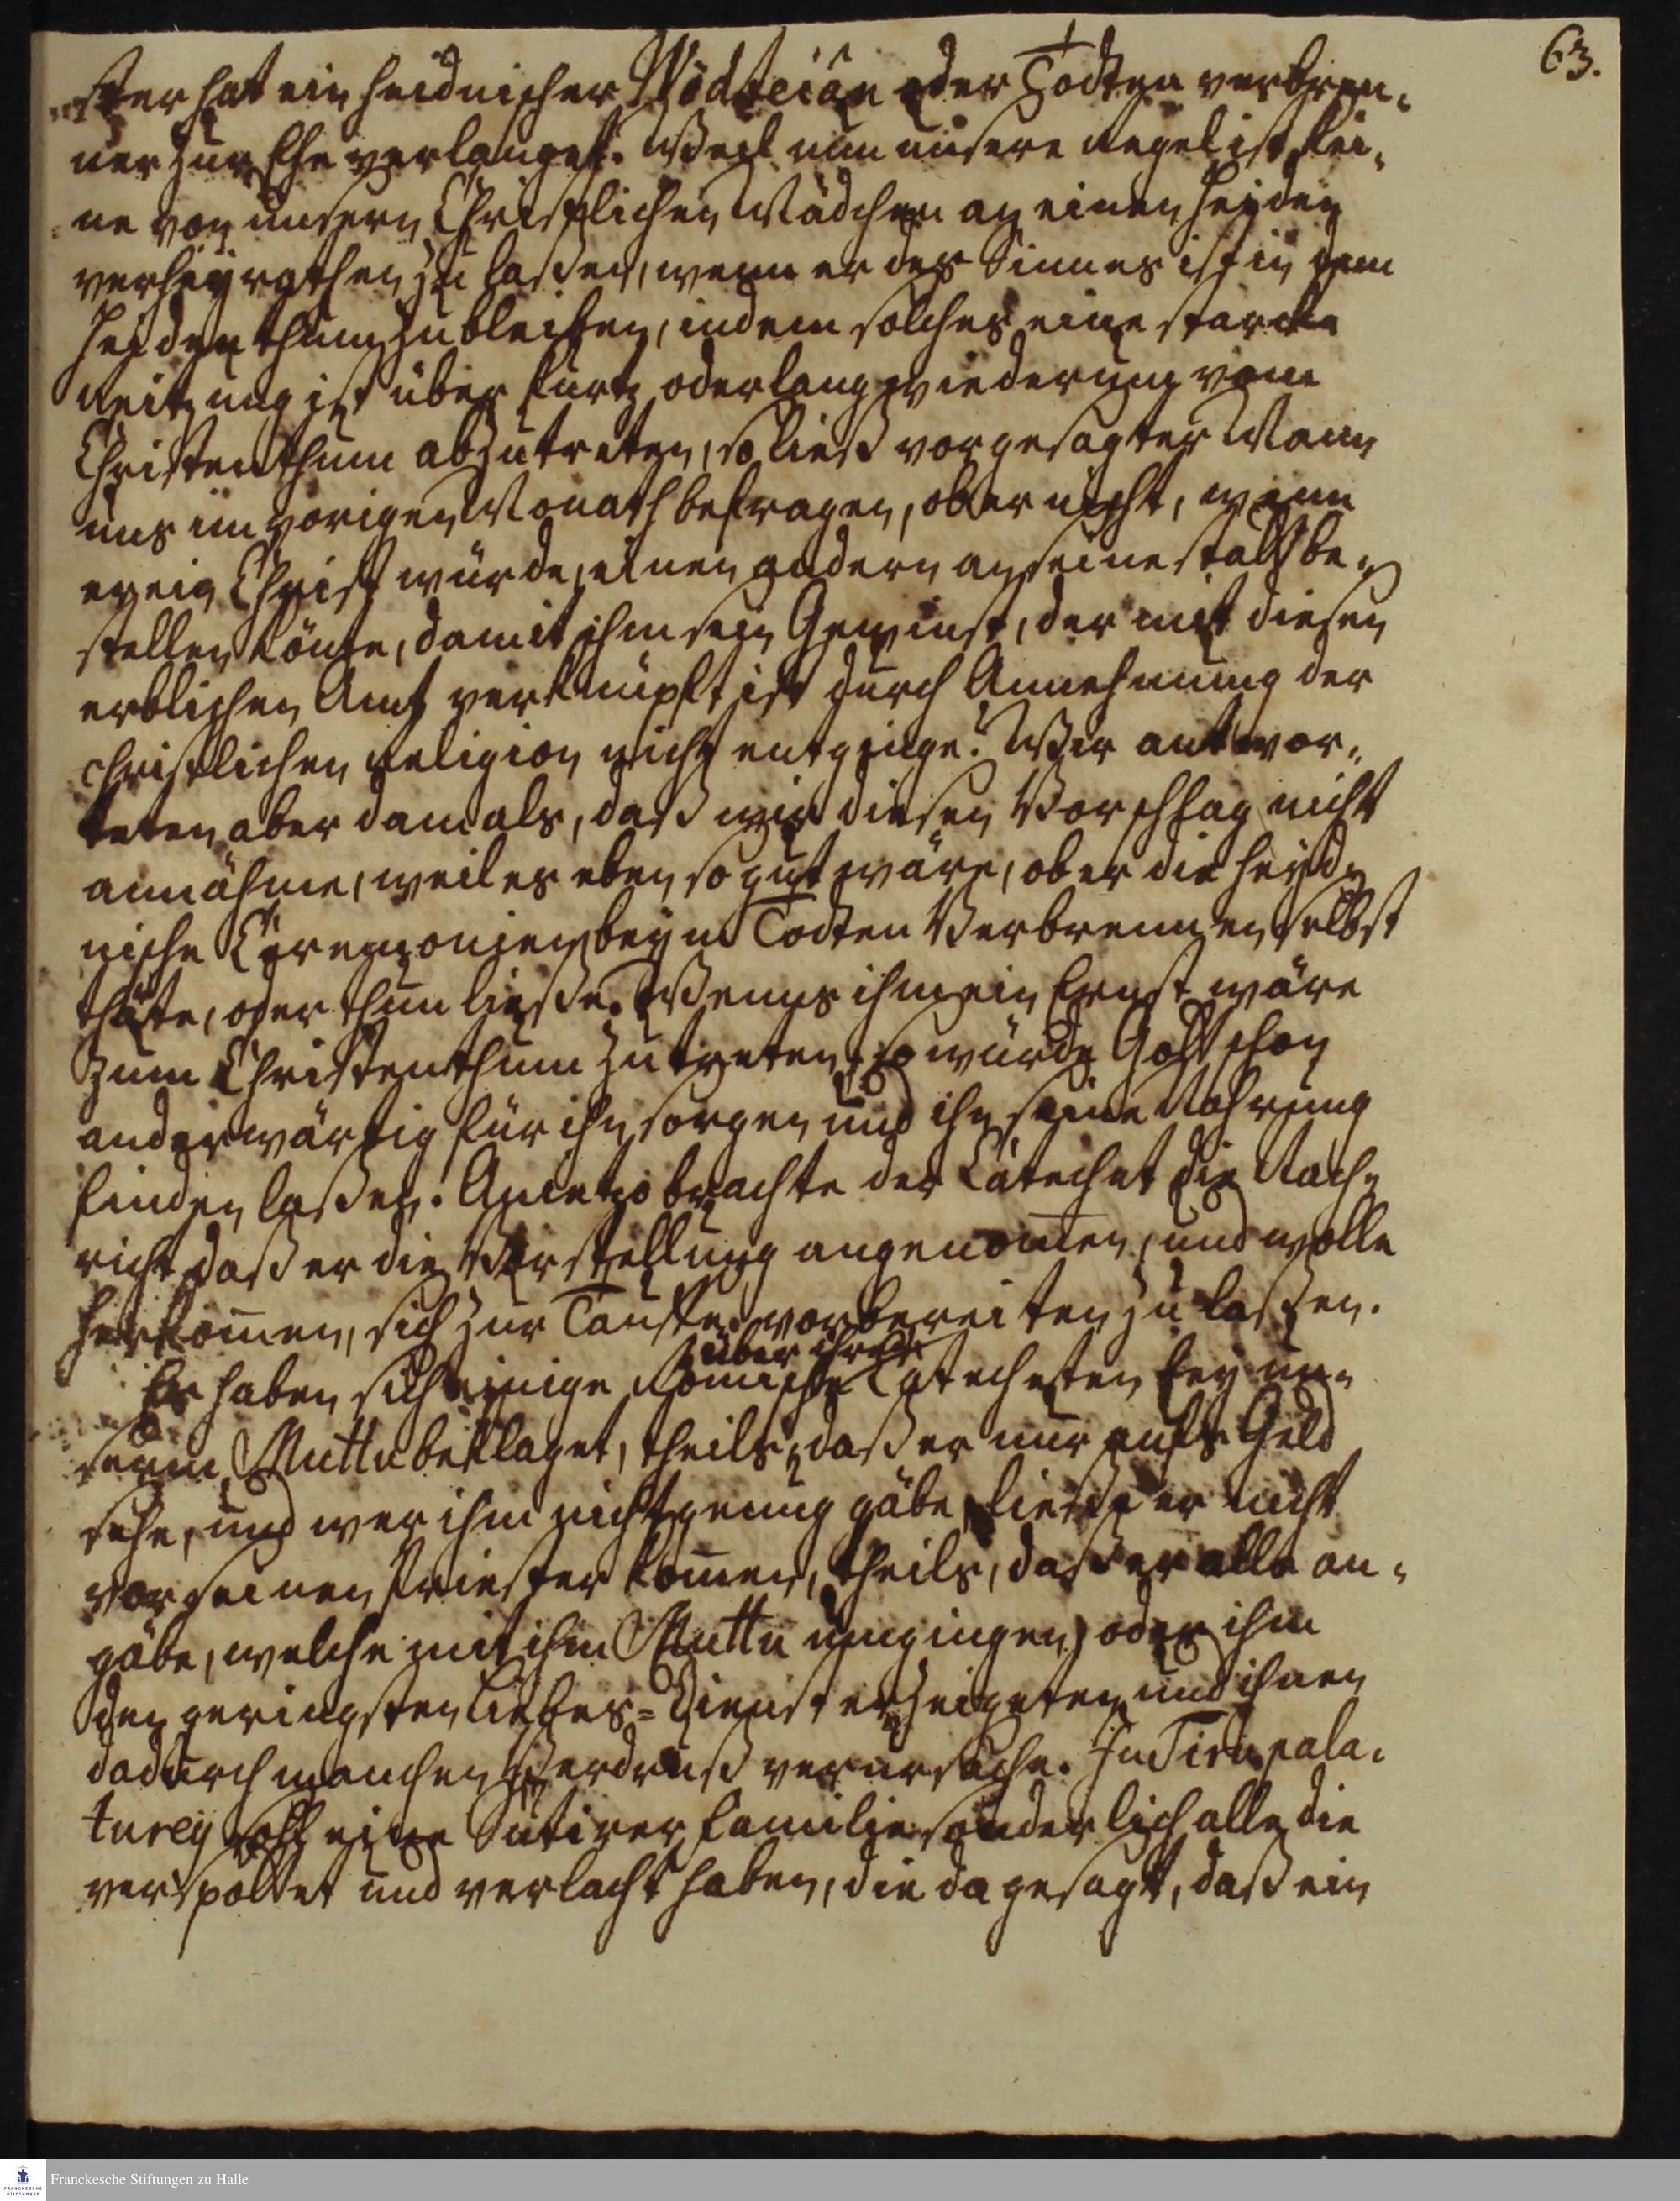 63.
ster hat ein heidnischer Wödteiân oder Todten verbren-
ner zur Ehe verlanget. Weil nun unsere Regel ist, kei-
ne von unsern Christlichen Mädchen an einen Heyden
verheyrathen zu laßen, wenn er des Sinnes ist in dem
Heidenthum zu bleiben, indem solches eine starcke
Reitzung ist über kurtz oder lang wiederum vom
Christenthum abzutreten, so ließ vorgesagter Mann
uns im vorigen Monath befragen, ob er nicht, wenn
er ein Christ würde, einen andern an seine statt be-
stellen könte, damit ihm sein Gewinst, der mit diesen
erblichen Amt verknüpft ist durch Annehmung der
christlichen Religion nicht entginge? Wir antwor-
teten aber damals, daß wir diesen Vorschlag nicht
annähme, weil es eben so gut wäre, ob er die heyd-
nische Ceremonien beym Todten Verbrennen selbst
thäte, oder thun ließe. Wenns ihm ein Ernst wäre
zum Christenthum zu treten, so würde Gott schon
anderwärtig für ihn sorgen und ihn seine Nahrung
finden laßen. Anietzo brachte der Catechet die Nach-
richt, daß er die Vorstellung angenommen, und wolle
herkommen, sich zur Tauffe vorbereiten zu laßen.
Es haben sich einige Römische über ihren Catecheten bey un-
serm Muttu beklaget, theils, daß er nur aufs Geld
sehe, und wer ihm nicht genug gäbe, ließe er nicht
vor seinen Priester kommen, theils, daß er alle an-
gäbe, welche mit ihm Muttu umgingen, oder ihm
den geringsten Liebes-Dienst erzeigeten und ihnen
dadurch manchen Verdruß verursache. In Tirupala-
turey soll eine Sutirer familie sonderlich alle die
verspottet und verlacht haben, die da gesagt, daß ein
Franckesche Stiftungen zu Halle